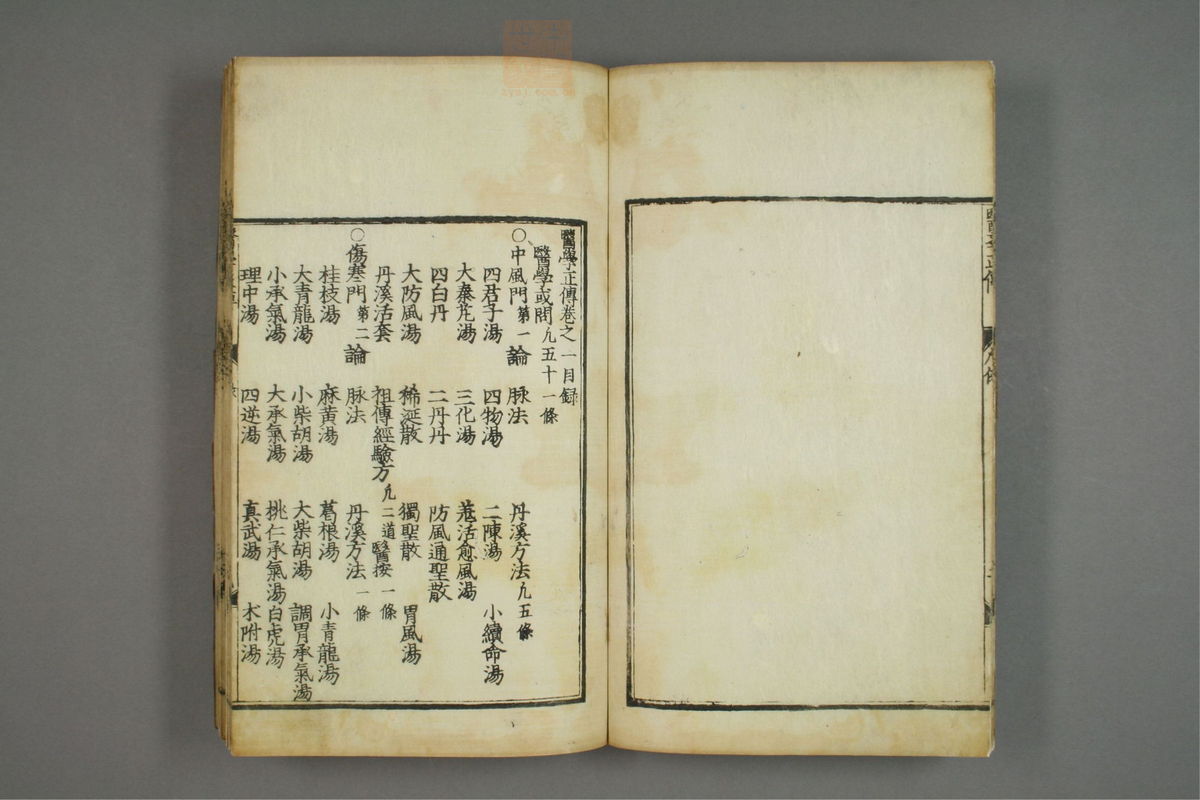 醫學正傳卷之一目録
醫學或問凡五十一條
○中風門第一 論 脉法 丹溪方法凡五條
四君子湯 四物湯 二陳湯 小續命湯
大秦艽湯 三化湯 羗活愈風湯
四白丹 二丹丹 防風通聖散
大防風湯 稀涎散 獨聖散 胃風湯
丹溪活套 祖傳經驗方凡二道 醫按一條
○傷寒門第二 論 脉法 丹溪方法一條
桂枝湯 麻黃湯 葛根湯 小青龍湯
大青龍湯 小柴胡湯 大柴胡湯 調胃承氣湯
小承氣湯 大承氣湯 桃仁承氣湯 白虎湯
理中湯 四逆湯 真武湯 朮附湯